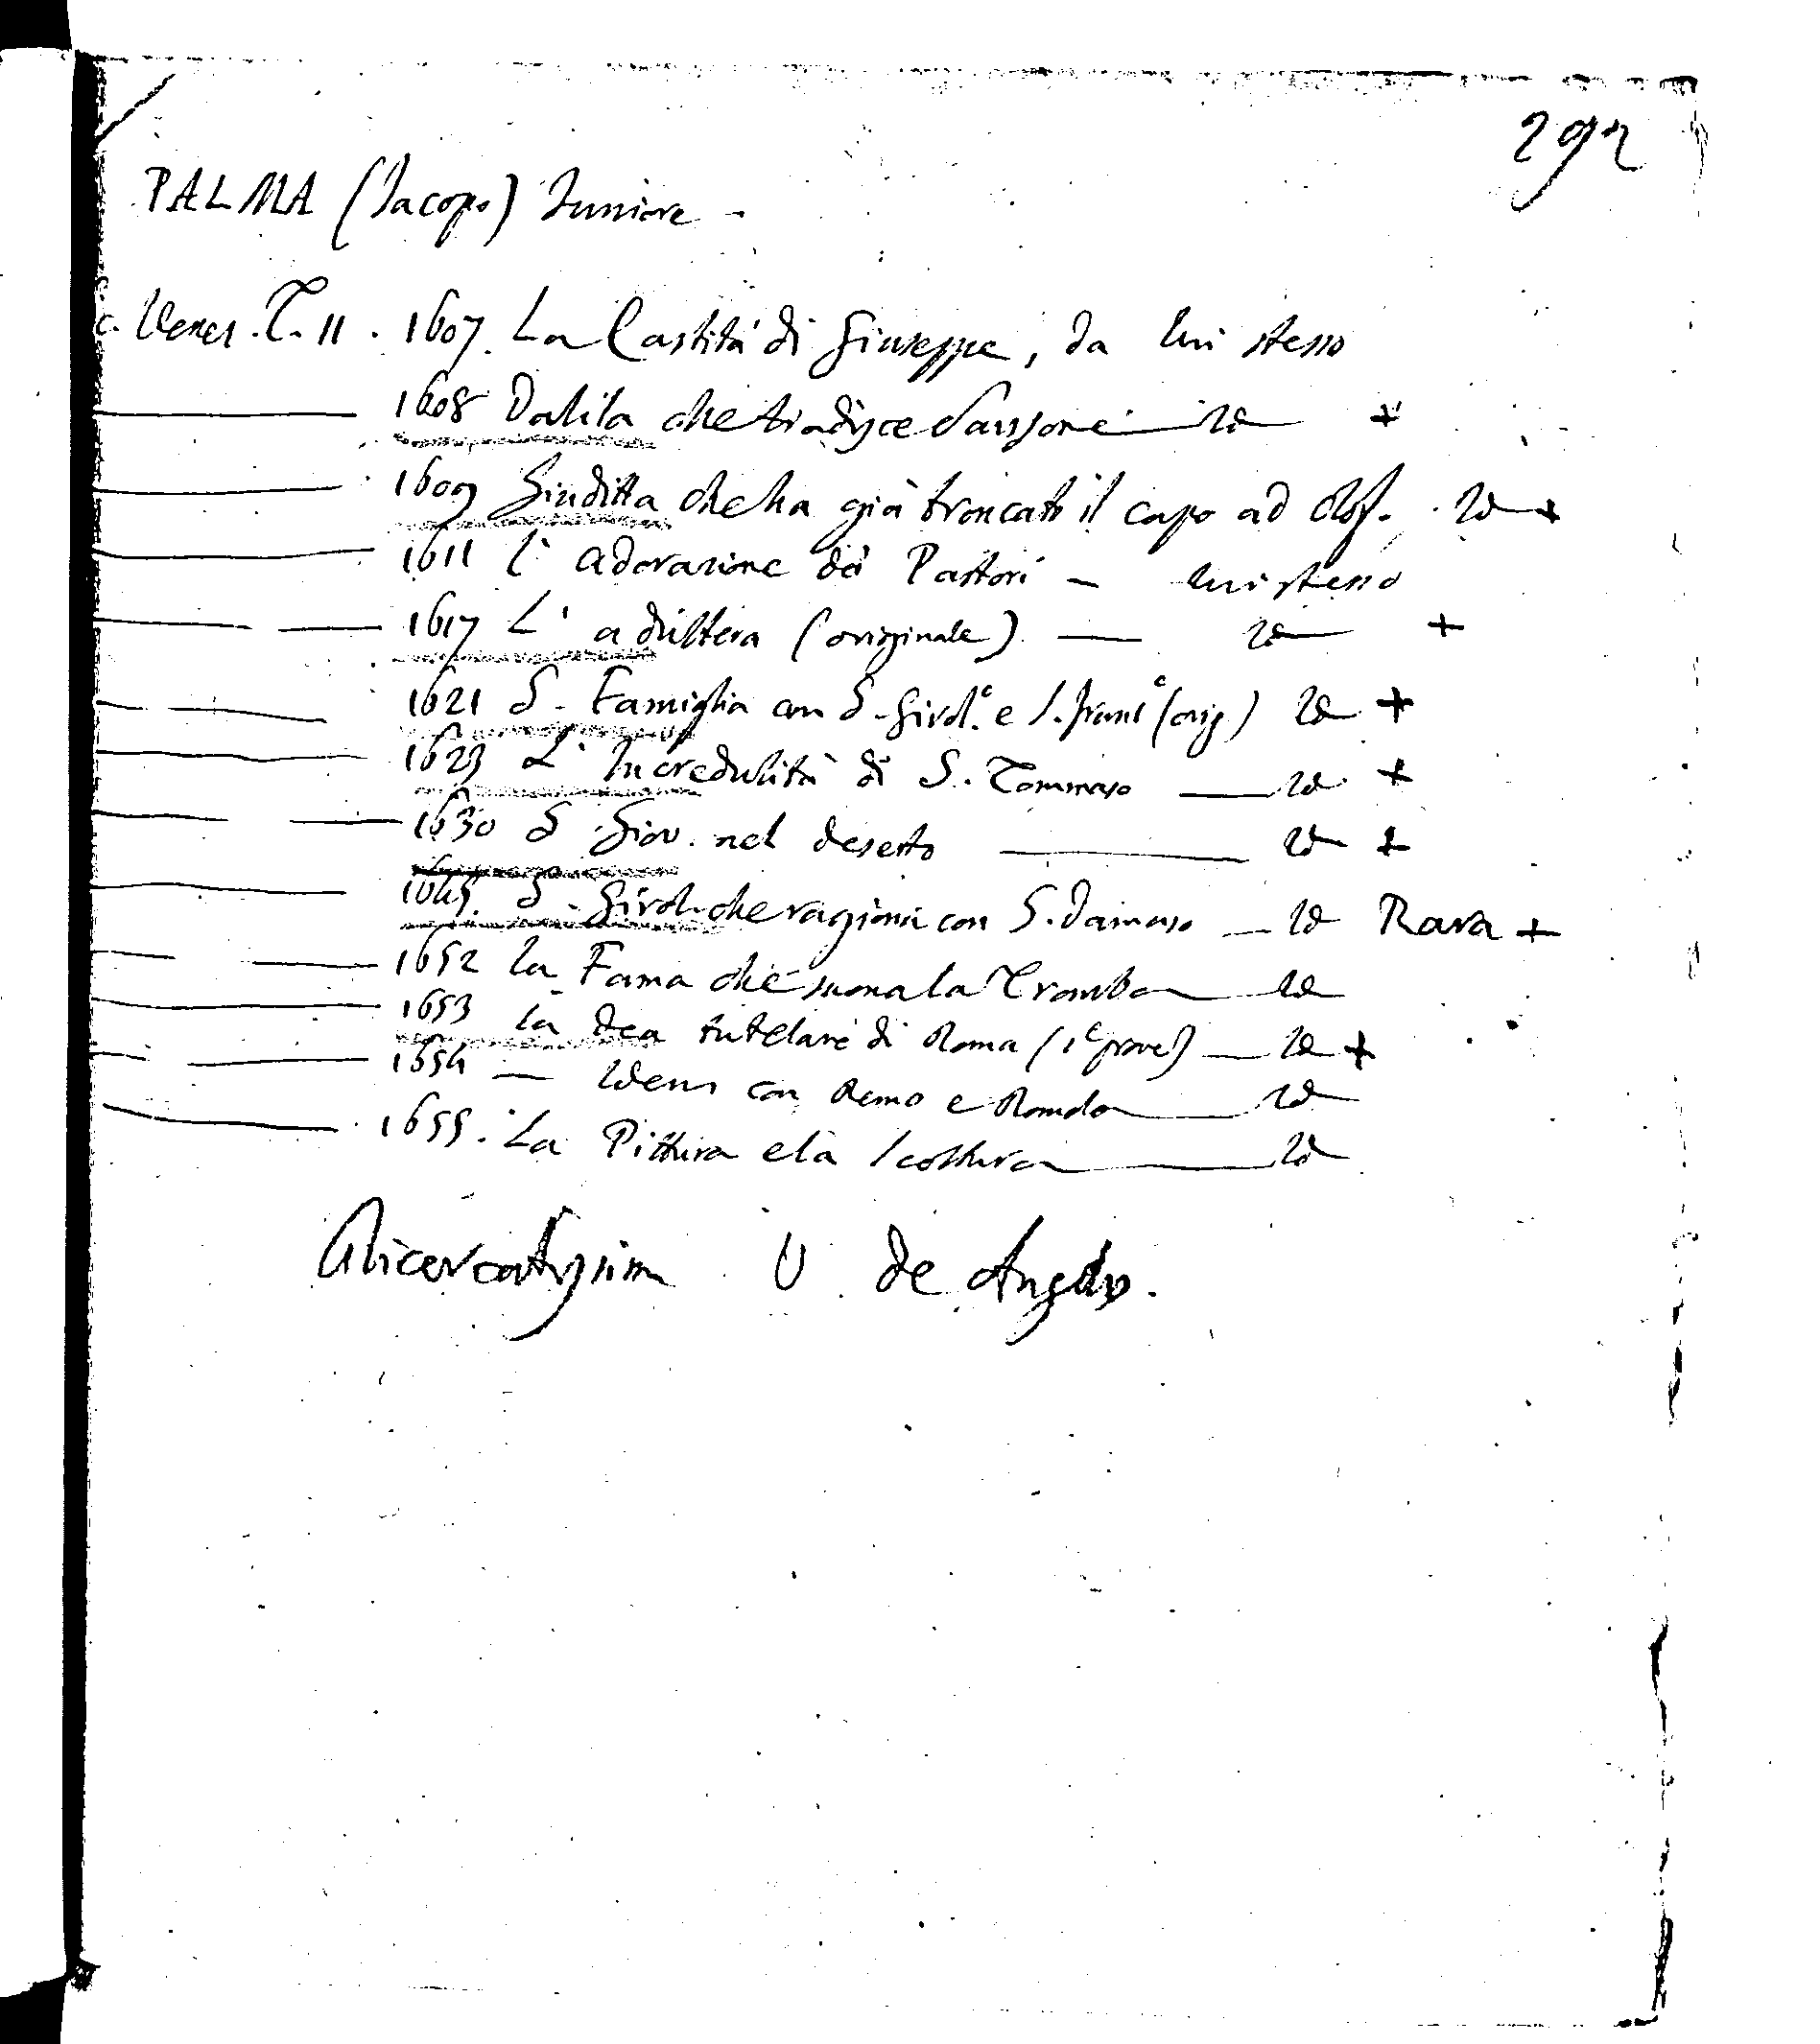 292
PALMA (Jacopo) Juniore -
c. Venez. T. 11. 1607. La Castità di Giuseppe, da lui stesso
1608 Dalila che tradisce Sanssone — Id — +
1609 Giuditta che ha già troncato il capo ad Olof. . Id — +
1611 L'adorazione dei Pastori — lui stesso
1617 L'adultera (originale) — Id — +
1621 S. Famiglia con S. Girol.º e S. Franc (orig.) Id — +
1623 L'Incredulità di S. Tommaso — Id +
1630 S. Giov. nel deserto — Id +
1645. S. Girol. che ragiona con S. Damaso — Id Rara +
1652 la Fama che suona la Tromba — Id
1653 la Dea tutelare di Roma (1e prove) — Id +
1654 — Idem con Remo e Romolo — Id
1655. La Pittura e la Scoltura — Id
U de Angelis.